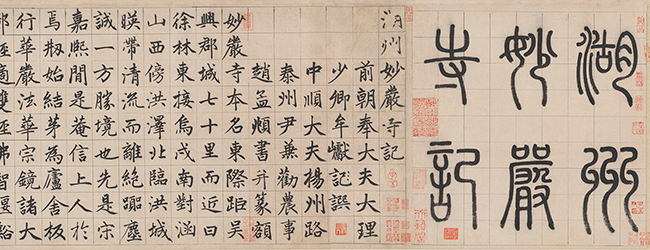 湖州
妙嚴
寺記
湖州妙嚴寺記
前朝奉大夫大理
少卿牟巘記譔
中順大夫揚州路
泰州尹兼勸農事
趙孟頫書并篆額
妙嚴寺本名東際距吳
興郡城七十里而近曰
徐林東接烏戍南對涵
山西傍洪澤北臨洪城
暎帶清流而離絕塵
誠一方勝境也先是宋
嘉熙間是菴信上人於
焉剏始結茅為廬舍板
行華嚴法華宗鏡諸大
部經適雙徑佛智偃谿